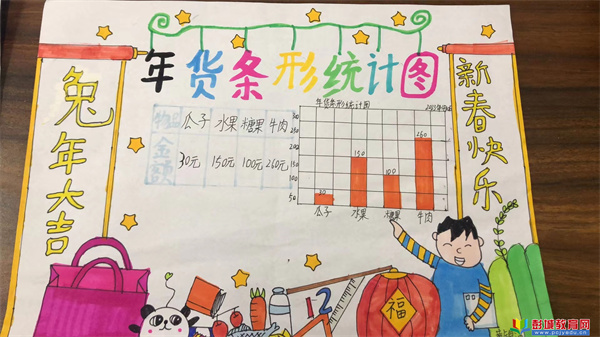 年货条形统计图
兔年大吉
新春快乐
物品 瓜子 水果 糖果 牛肉
金额 30元 150元 100元 260元
年货条形统计图
300
250
200
150
100
50
30
150
100
260
瓜子 水果 糖果 牛肉
12
福
彭城教育网
www.pcjyedu.cn